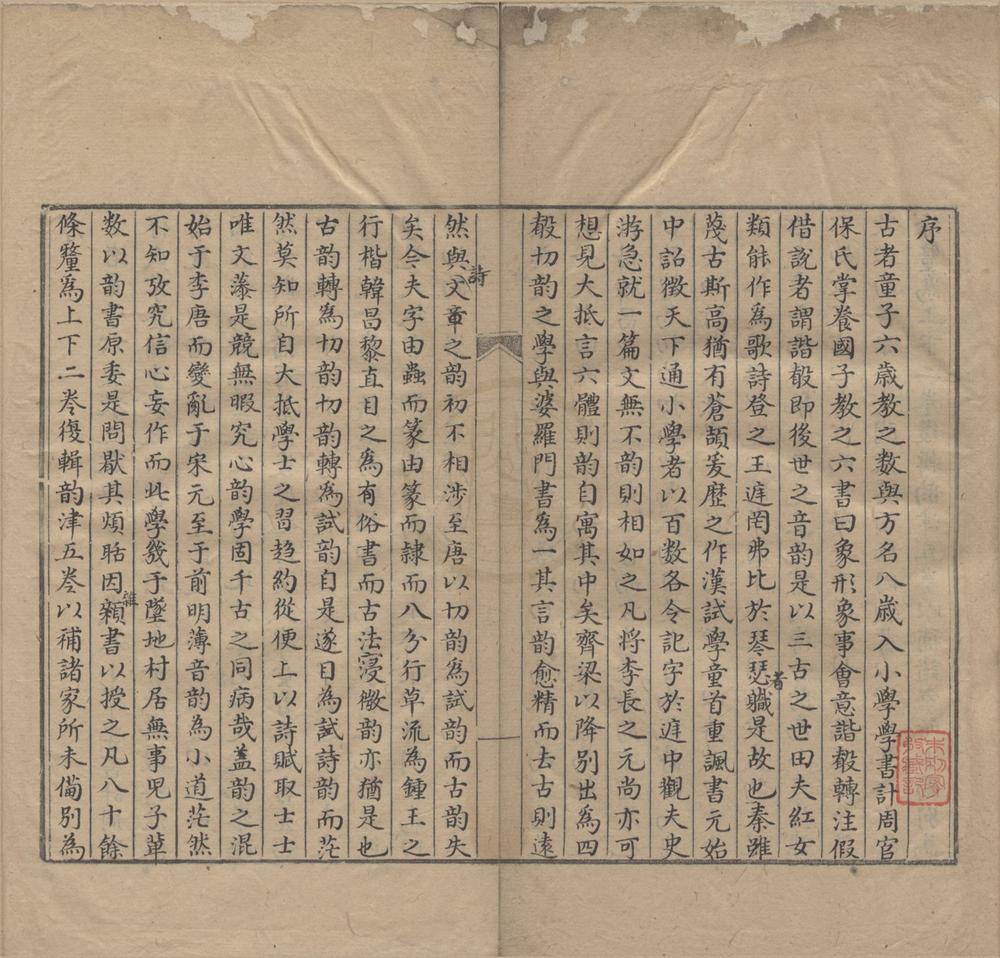 序
古者童子六歳教之数與方名八歳入小學學書計周官
保氏掌養國子教之六書曰象形象事會意諧聲轉注假
借說者謂諧聲即後世之音韵是以三古之世田夫紅女
類能作為歌詩登之王廷罔弗比於琴瑟者職是故也秦雖
蔑古斯高猶有蒼頡爰歴之作漢試學童首重諷書元始
中詔徴天下通小學者以百数各令記字於廷中觀夫史
游急就一篇文無不韵則相如之凡將李長之元尚亦可
想見大抵言六體則韵自寓其中矣齊梁以降别出為四
聲切韵之學與婆羅門書為一其言韵愈精而去古則遠
然與詩文章之韵初不相涉至唐以切韵為試韵而古韵失
矣今夫字由蟲而篆由篆而隸而八分行草流為鍾王之
行楷韓昌黎直目之為有俗書而古法寖微韵亦猶是也
古韵轉為切韵切韵轉為試韵自是遂目為試詩韵而茫
然莫知所自大抵學士之習趋約從便上以詩賦取士士
唯文藻是競無暇究心韵學固千古之同病哉蓋韵之混
始于李唐而變亂于宋元至于前明薄音韵為小道茫然
不知攷究信心妄作而此學幾于墜地村居無事児子輩
数以韵書原委是問猒其煩聒因雜纇書以授之凡八十餘
條釐為上下二卷復輯韵津五卷以補諸家所未僃别為